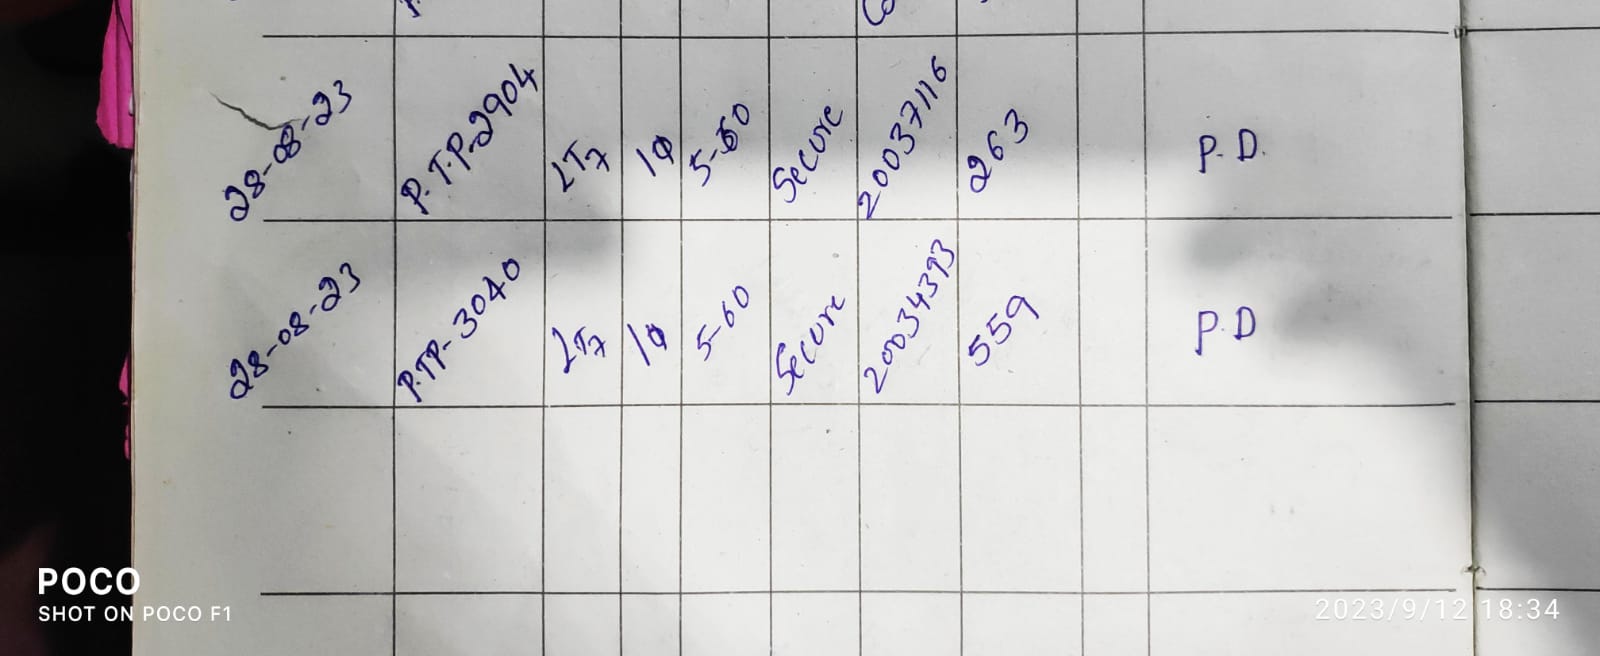 28-08-23 P.T.P-2904 LT7 1Φ 5-60 Secure 20037116 263 P.D.
28-08-23 P.TP-3040 LT7 1Φ 5-60 Secure 20034393 559 P.D
POCO
SHOT ON POCO F1
2023/9/12 18:34